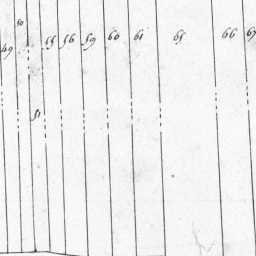 50
49 55 56 59 60 61 65 66 67
51